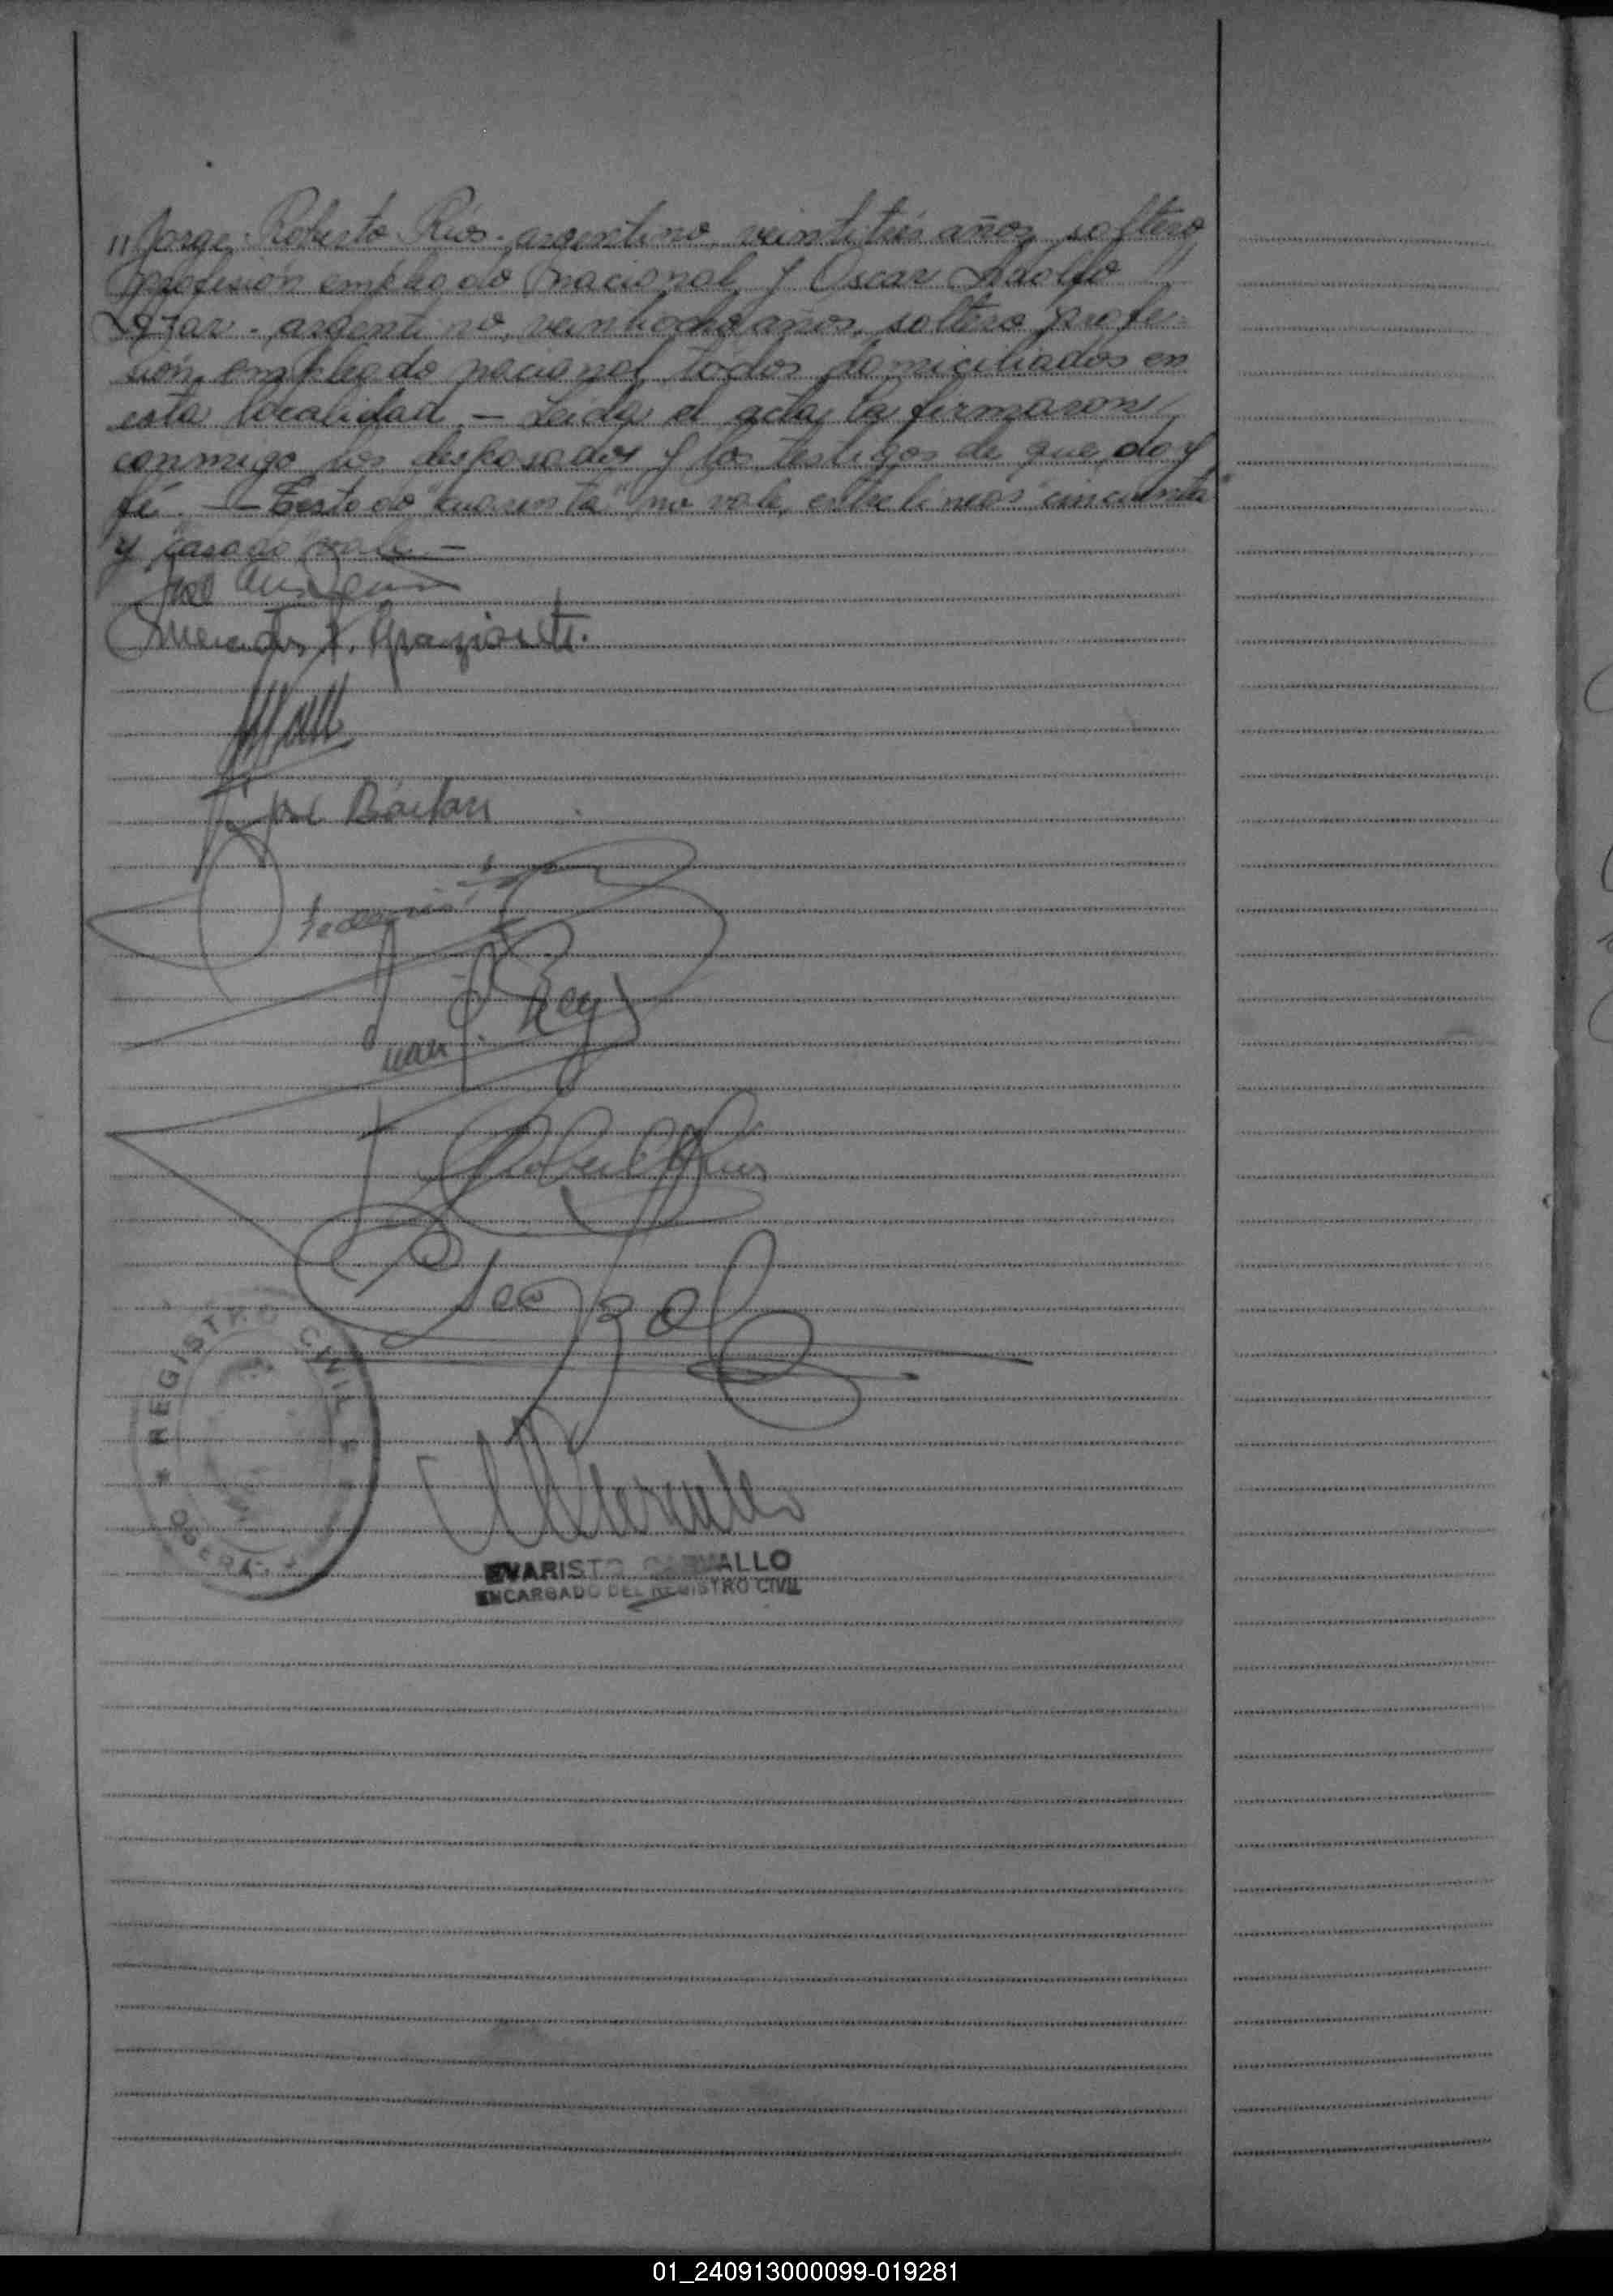 " Jorge Roberto Ríos. argentino, veintitrés años, soltero
profesión empleado nacional y Oscar Adolfo
argentino, veintiocho años, soltero profe-
sión, empleado nacional, todos domiciliados en
esta localidad. — Leída el acta la firmaron
conmigo los desposados y los testigos de que doy
fé. — Testado "cuarenta" no vale, entre lineas "cincuenta"
y casado vale. —
José
Mercedes
José
Juan Rey
Roberto Ríos
REGISTRO CIVIL
OBERA
EVARISTO CARVALLO
ENCARGADO DEL REGISTRO CIVIL
01_240913000099-019281